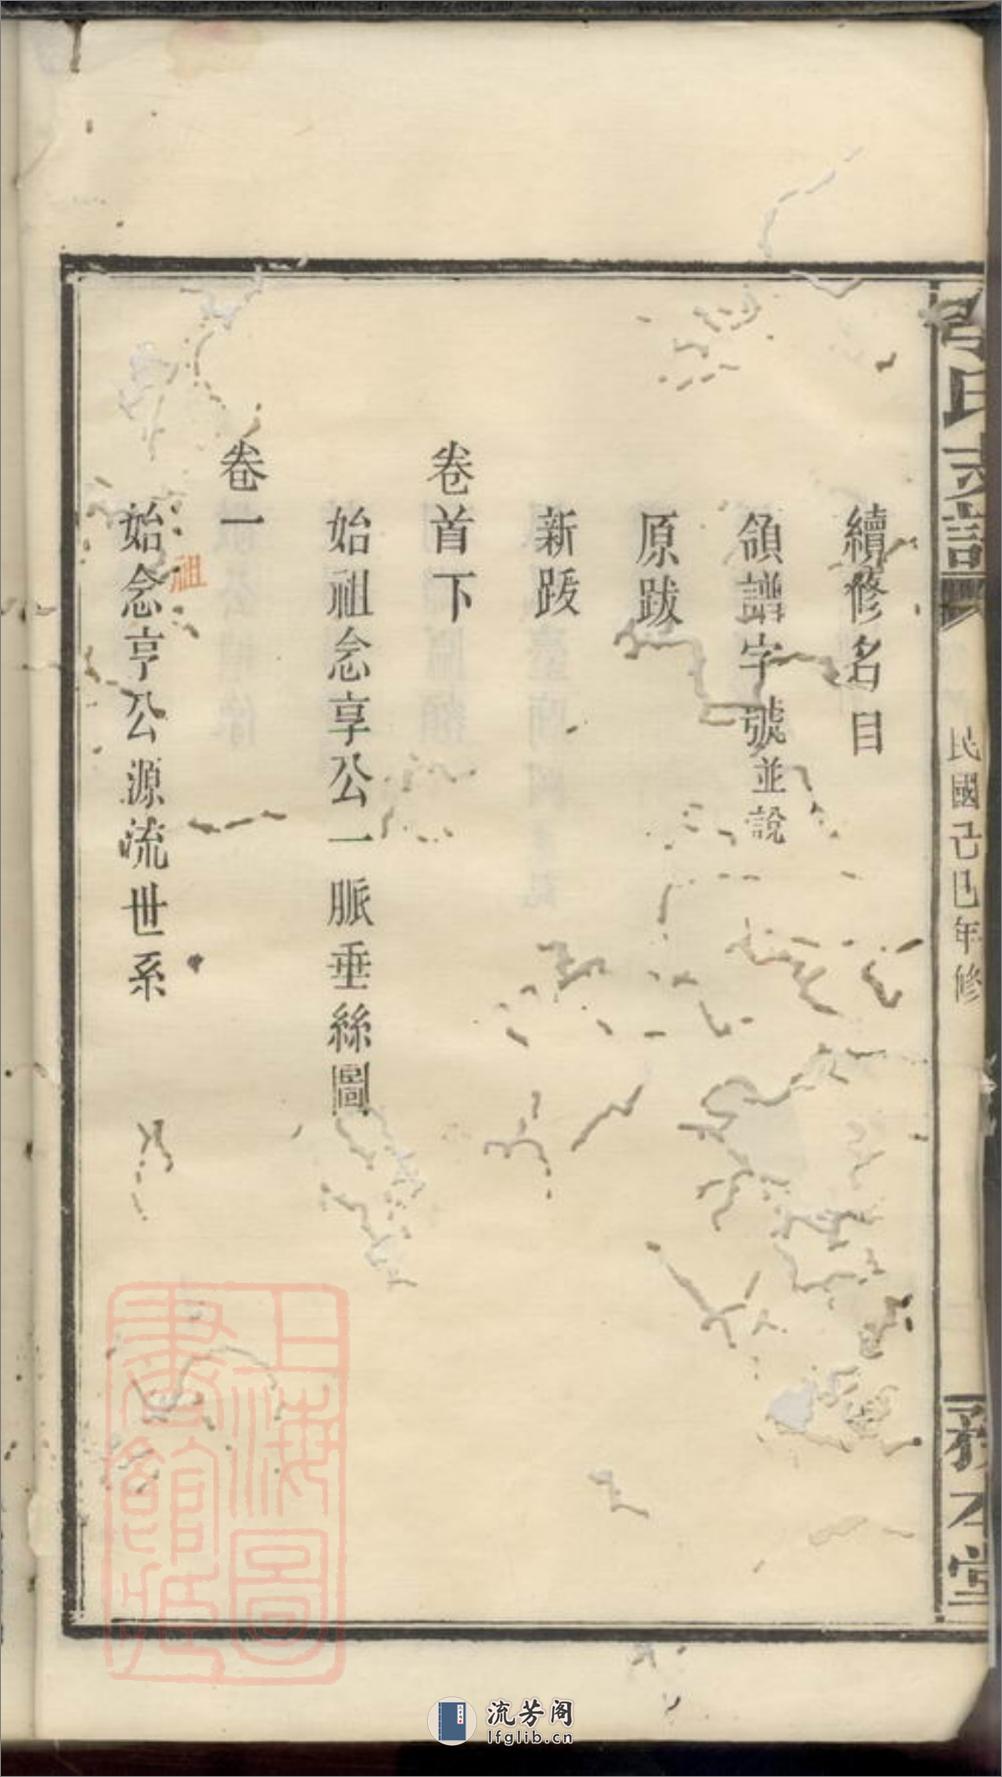 氏支譜
民國己巳年修
務本堂
續修名目
領譜字號並說
原跋
新跋
卷首下
始祖念享公一脈垂絲圖
卷一
祖
始念亨公源流世系
上海圖
書館藏
流芳阁
lfglib.cn